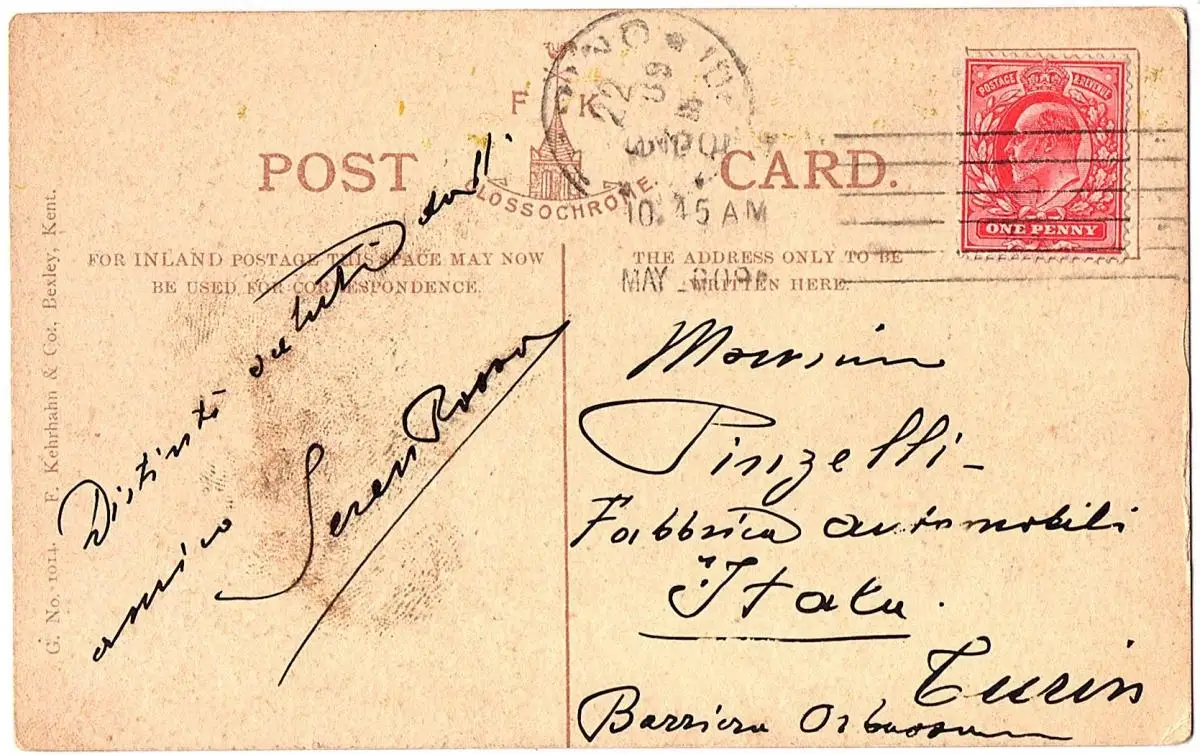 F K
GLOSSOCHROME.
POST CARD.
FOR INLAND POSTAGE THIS SPACE MAY NOW
BE USED FOR CORRESPONDENCE.
THE ADDRESS ONLY TO BE
WRITTEN HERE.
G. No. 1014. F. Kehrhahn & Co., Bexley, Kent.
POSTAGE & REVENUE
ONE PENNY
22
09
10.45 AM
MAY 09
Distinti saluti dall'
amico Seren Rosso
Monsieur
Pinzelli-
Fabbrica automobili
"Itala.
Turin
Barriera Orbassano